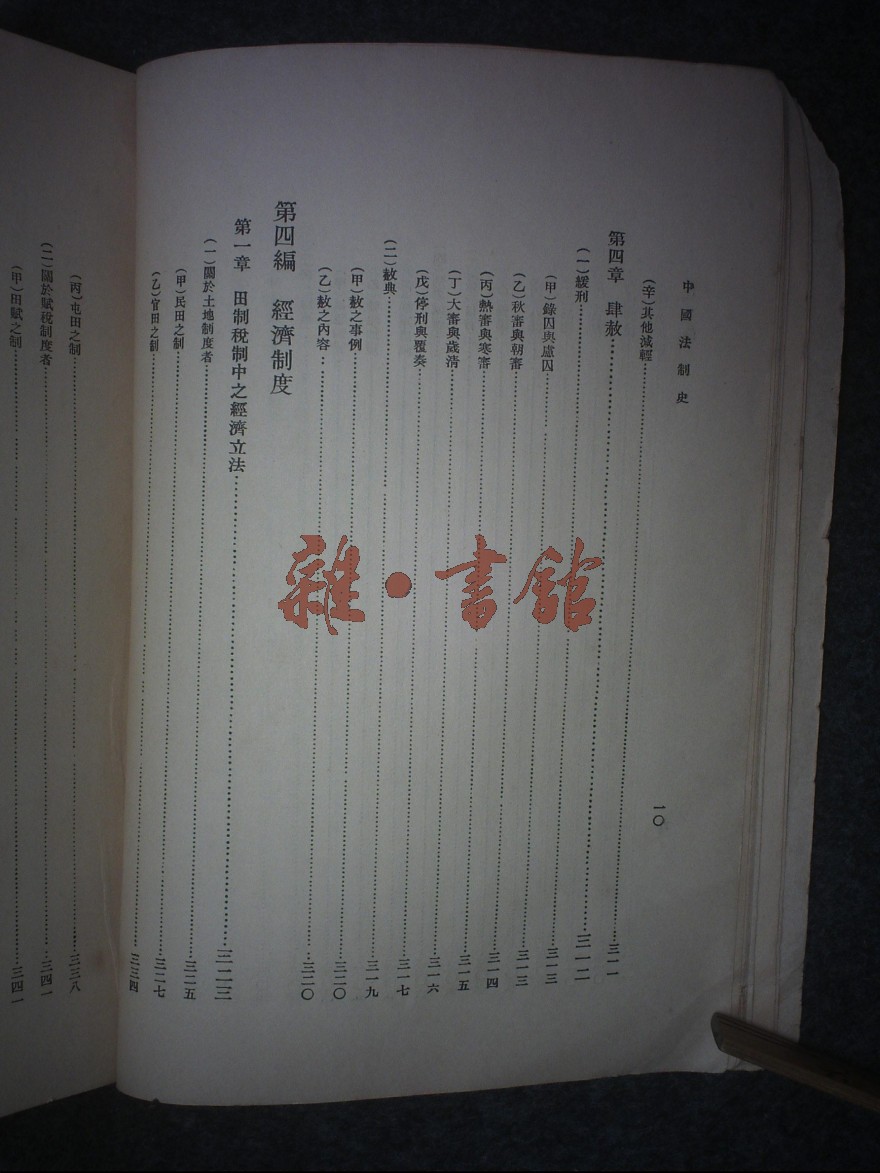 中國法制史 一〇
(辛)其他減輕……三一一
第四章 肆赦……三一二
(一)緩刑……三一三
(甲)錄囚與慮囚……三一三
(乙)秋審與朝審……三一四
(丙)熱審與寒審……三一五
(丁)大審與歲清……三一六
(戊)停刑與覆奏……三一七
(二)赦典……三一九
(甲)赦之事例……三二〇
(乙)赦之內容……三二〇
第四編 經濟制度
第一章 田制稅制中之經濟立法……三二三
(一)關於土地制度者……三二五
(甲)民田之制……三二七
(乙)官田之制……三三四
(丙)屯田之制……三三八
(二)關於賦稅制度者……三四一
(甲)田賦之制……三四一
雜·書館